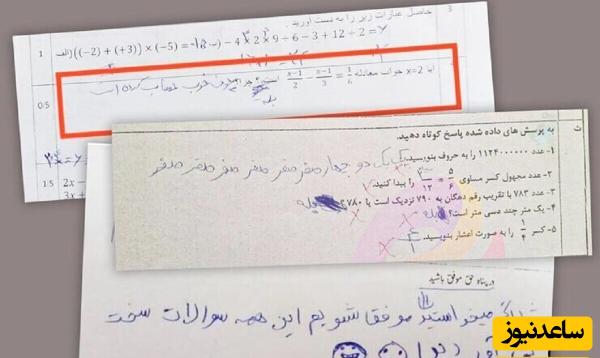 حاصل عبارات زیر را به دست آورید.
3
1
الف) ((-2) + (+3)) × (-5) =
ب) - 4 × 2 × 9 ÷ 6 - 3 + 12 ÷ 2 =
0/5
آیا x=2 جواب معادله 1/6 = x-1/3 - x-1/2 است؟ چرا؟ چون خوب حساب کرده است
بله
1/5
2x -
3x +
ت
به پرسش های داده شده پاسخ کوتاه دهید.
۱- عدد ۱۱۲۴۰۰۰۰۰۰ را به حروف بنویسید. یک یک دو چهار صفر صفر صفر صفر صفر صفر
۲- عدد مجهول کسر مساوی ۵/۶ = /۱۲ را پیدا کنید.
۳- عدد ۷۸۳ با تقریب رقم دهگان به ۷۹۰ نزدیک است یا ۷۸۰؟ بله
۴- یک متر چند دسی متر است؟ بله
۵- کسر ۱/۴ را به صورت اعشار بنویسید. ۴/۱
در پناه حق موفق باشید
اگر میخواستید موفق شویم این همه سوالات سخت
ساعدنیوز